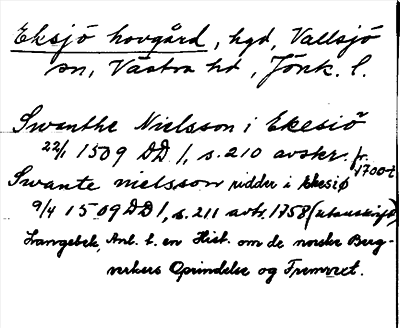 Eksjö hovgård, hgd, Vallsjö
sn, Västra hd, Jönk. l.
Swanthe Nielsson i Ekesiö
22/1 1509 DD 1, s. 210 avskr. fr.
1700-t
Swante nielsson ridder i Ekesiö
9/4 1509 DD 1, s. 211 avtr. 1758 (utanskrift)
Langebek, Anl. t. en Hist. om de norske Berg-
verkers Oprindelse og Fremvext.